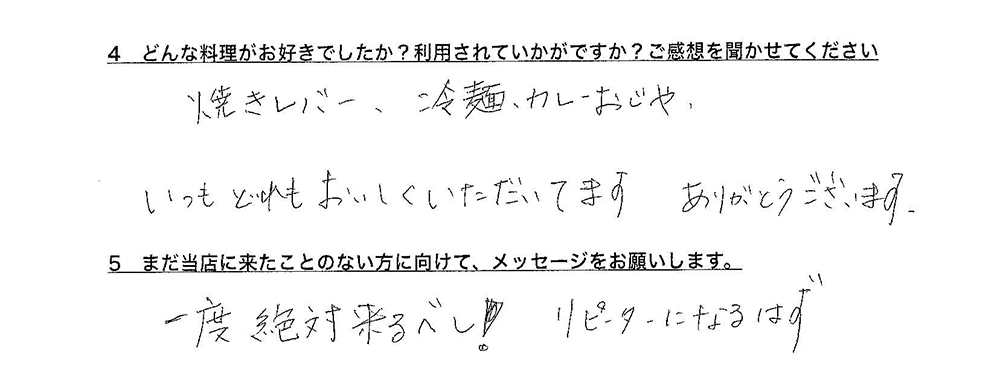 4 どんな料理がお好きでしたか？利用されていかがですか？ご感想を聞かせてください
焼きレバー、冷麺、カレーおじや、
いつもどれもおいしくいただいてます ありがとうございます.
5 まだ当店に来たことのない方に向けて、メッセージをお願いします。
一度絶対来るべし! リピーターになるはず